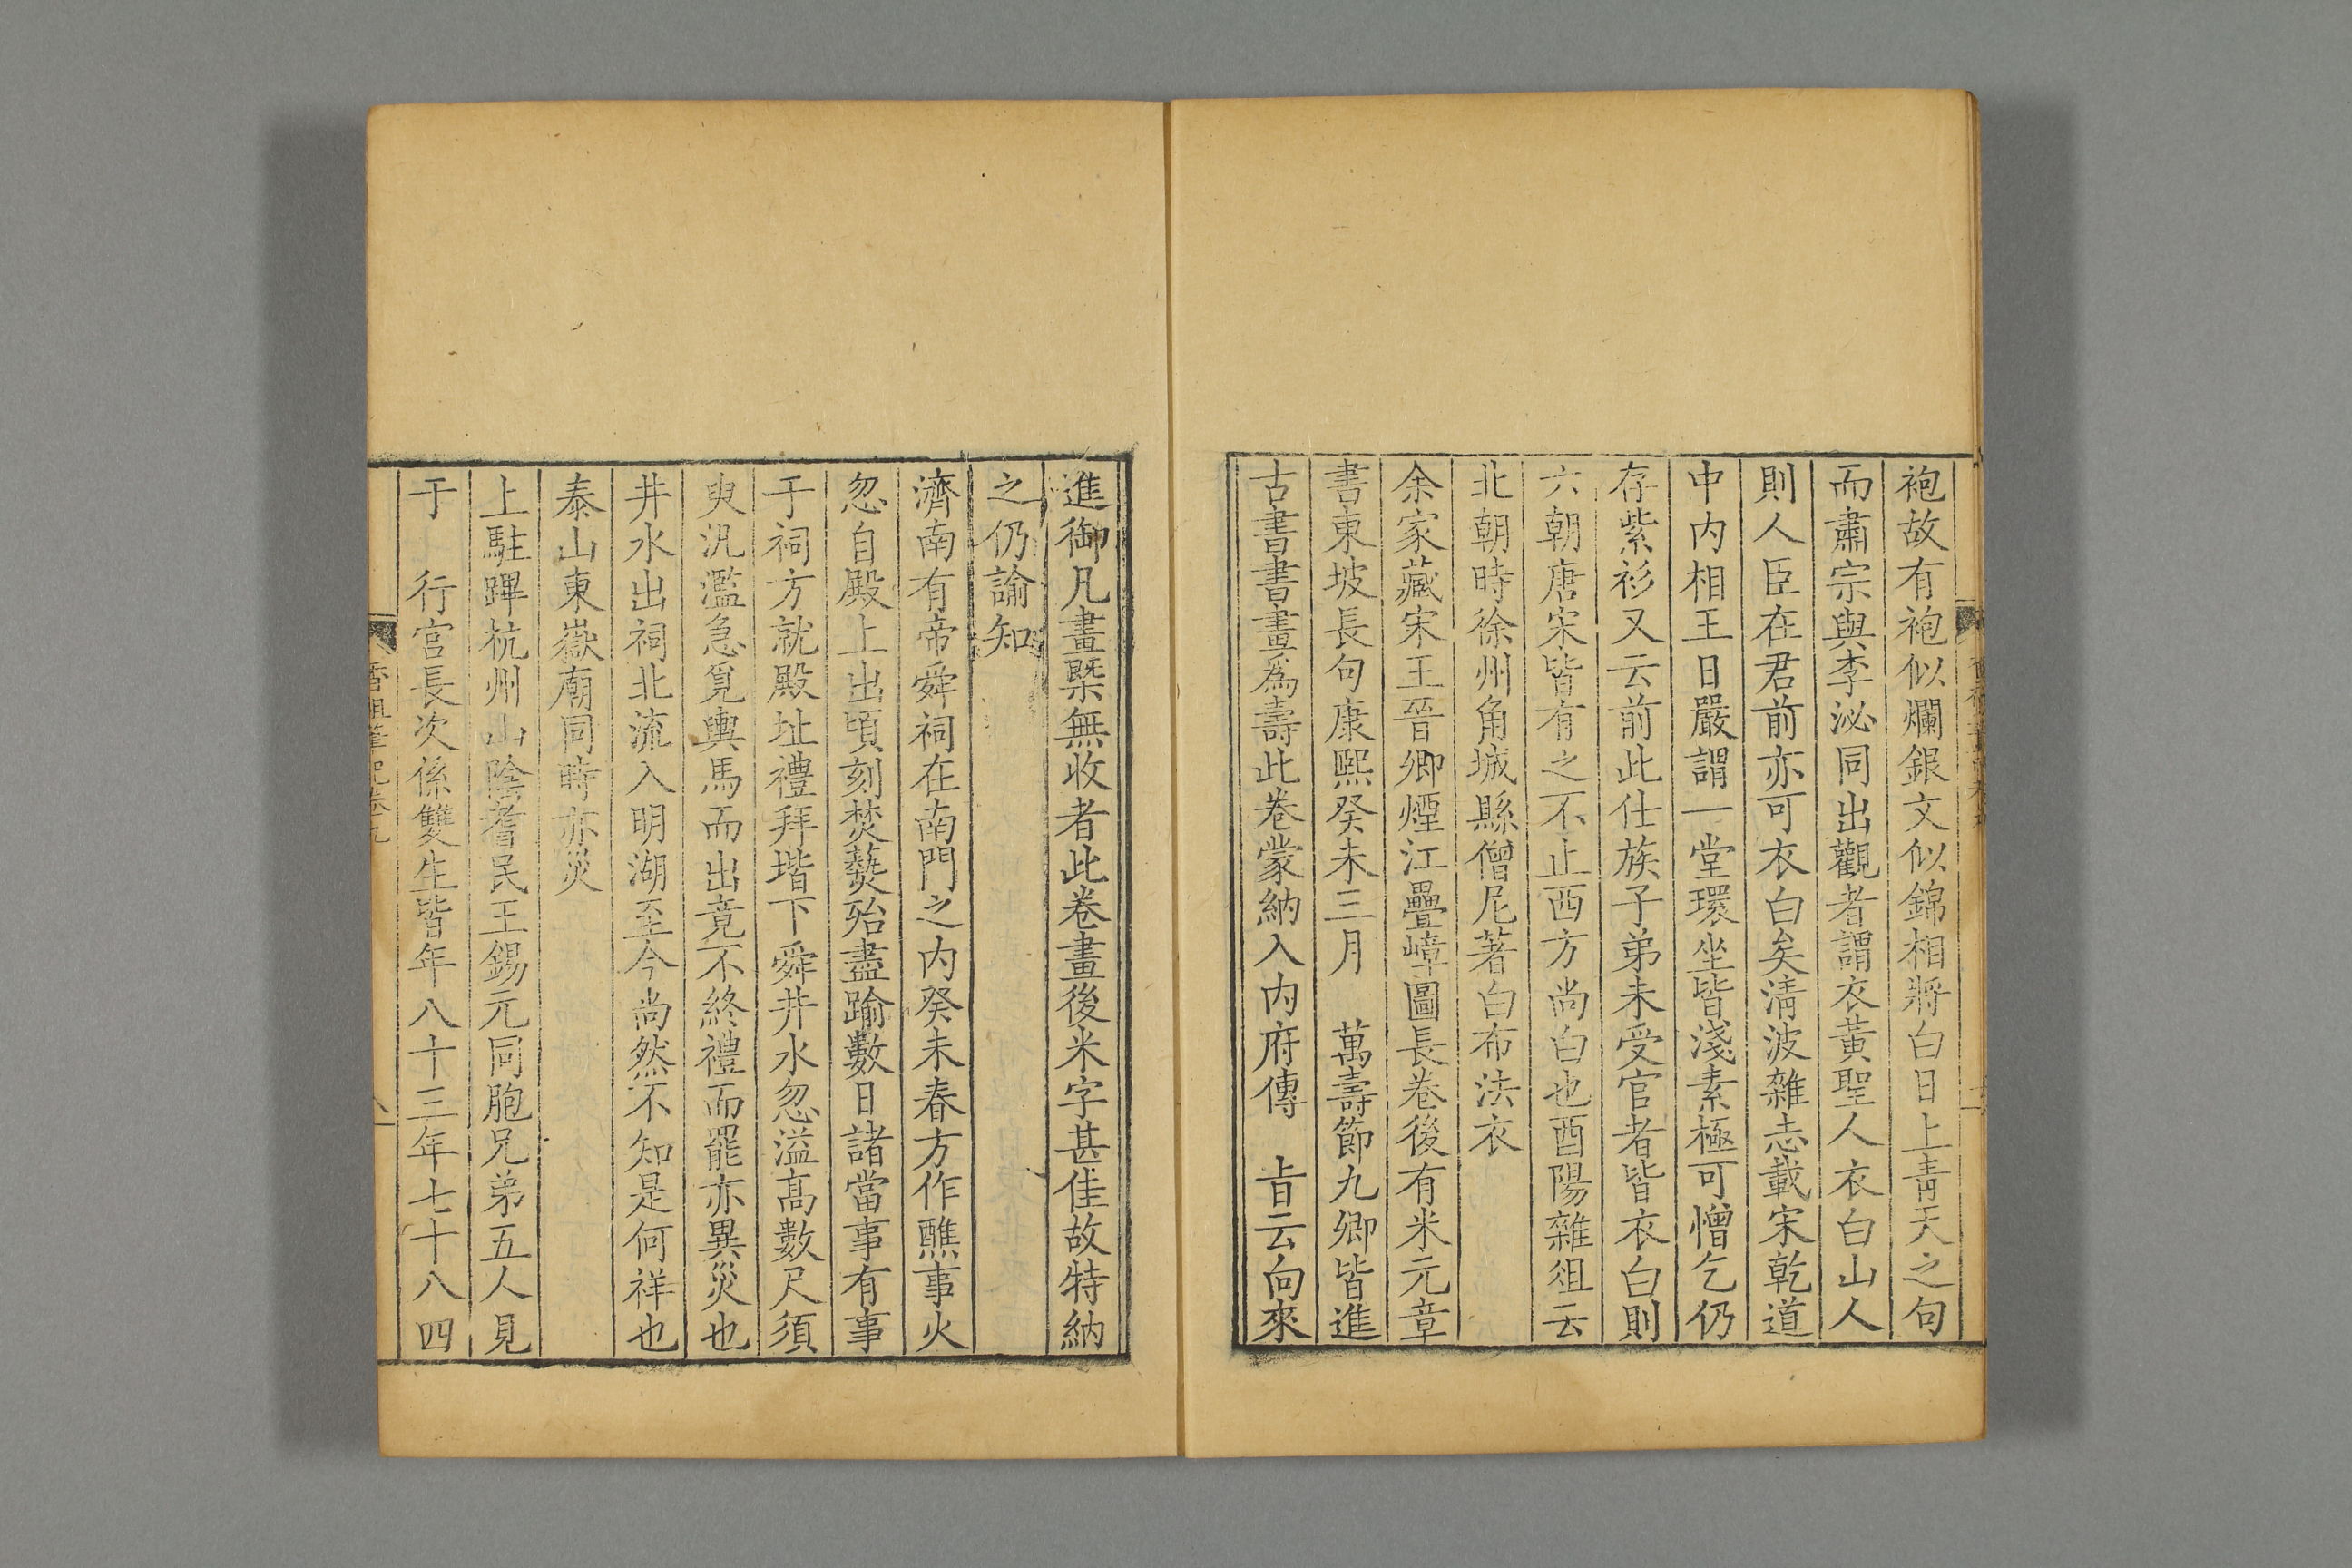 袍故有袍似爛銀文似錦相將白日上靑天之句
而肅宗與李泌同出觀者謂衣黃聖人衣白山人
則人臣在君前亦可衣白矣淸波雜志載宋乾道
中內相王日嚴謂一堂環坐皆淺素極可憎乞仍
存紫衫又云前此仕族子弟未受官者皆衣白則
六朝唐宋皆有之不止西方尚白也酉陽雜俎云
北朝時徐州角城縣僧尼著白布法衣
余家藏宋王晉卿煙江疊嶂圖長卷後有米元章
書東坡長句康熙癸未三月　萬壽節九卿皆進
古書書畫爲壽此卷蒙納入內府傳　旨云向來
進御凡畫槩無收者此卷畫後米字甚佳故特納
之仍諭知
濟南有帝舜祠在南門之內癸未春方作醮事火
忽自殿上出頃刻焚爇殆盡踰數日諸當事有事
于祠方就殿址禮拜堦下舜井水忽溢高數尺須
臾汎濫急覓輿馬而出竟不終禮而罷亦異災也
井水出祠北流入明湖至今尚然不知是何祥也
泰山東嶽廟同時亦災
上駐蹕杭州山陰耆民王錫元同胞兄弟五人見
于　行宮長次係雙生皆年八十三年七十八四
香祖筆記卷九